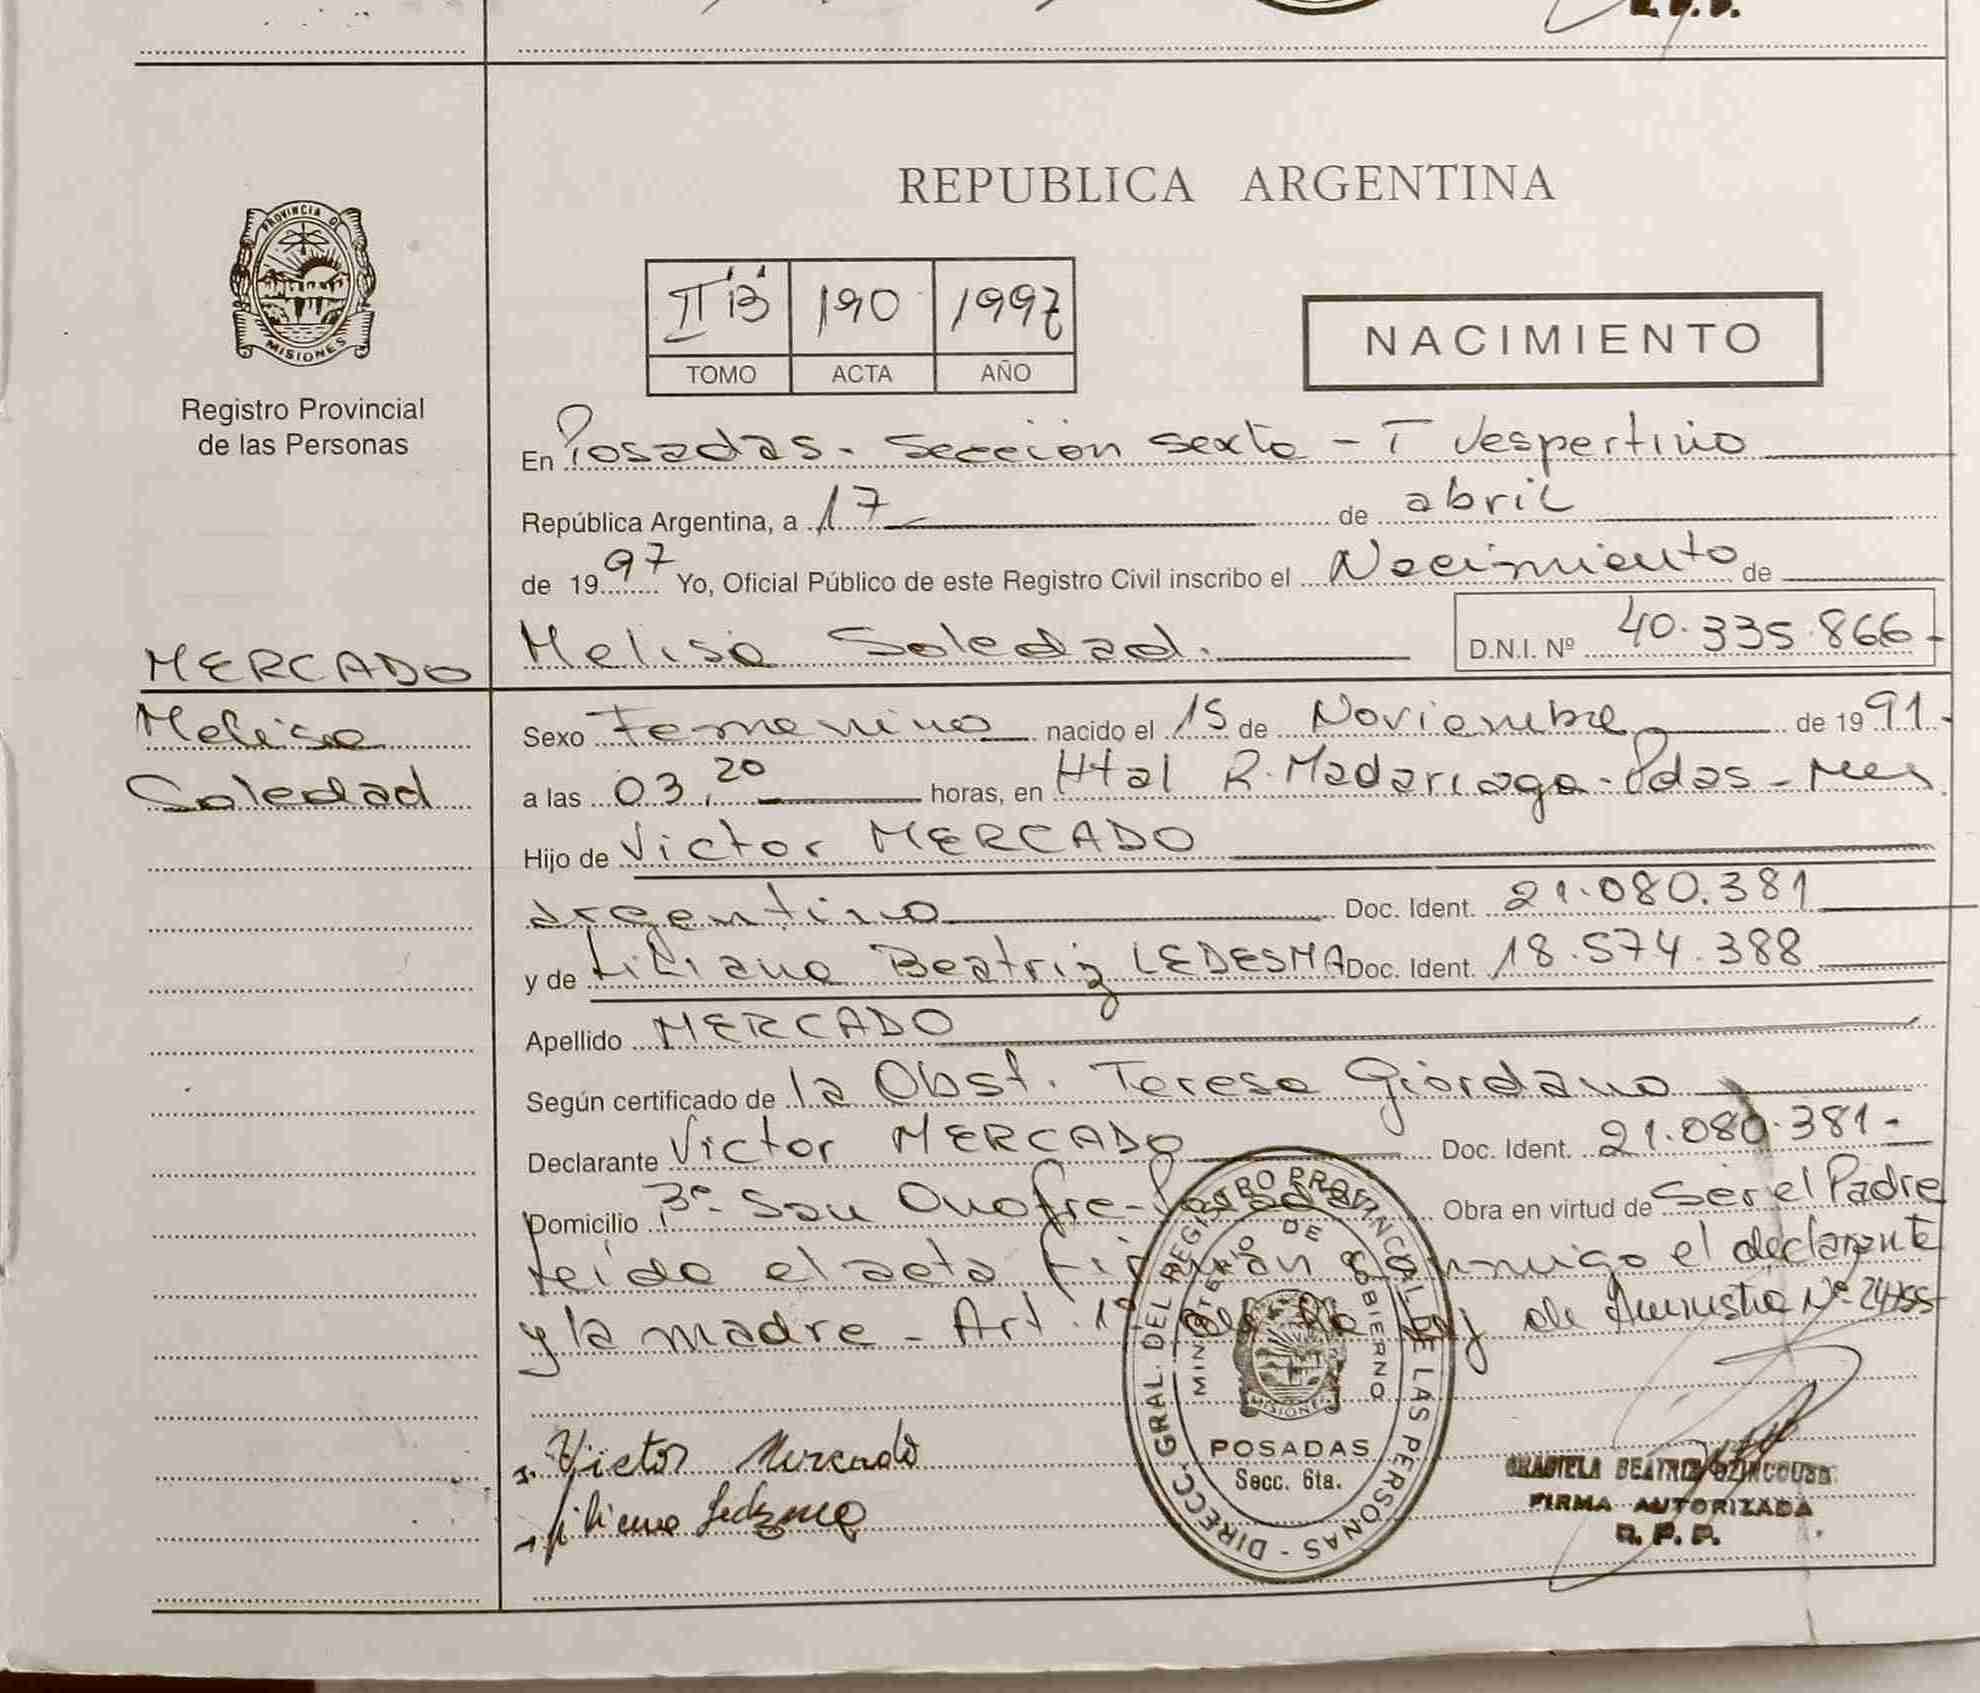 R. P. P.
PROVINCIA DE
MISIONES
Registro Provincial
de las Personas
REPUBLICA ARGENTINA
II "B" 190 1997
TOMO ACTA AÑO
NACIMIENTO
En Posadas - Sección sexta - T Vespertino
República Argentina, a 17 de abril
de 1997 Yo, Oficial Público de este Registro Civil inscribo el Nacimiento de
MERCADO
Melisa Soledad
Melisa Soledad. D.N.I. Nº 40.335.866-
Sexo Femenino nacido el 15 de Noviembre de 1991-
a las 03,20 horas, en Htal R. Madariaga - Pdas - Mes
Hijo de Victor MERCADO
argentino Doc. Ident. 21.080.381
y de Liliana Beatriz LEDESMA Doc. Ident. 18.574.388
Apellido MERCADO
Según certificado de la Obst. Teresa Giordano
Declarante Victor MERCADO Doc. Ident. 21.080.381-
Domicilio San Onofre - Posadas Obra en virtud de Ser el Padre
Leída el acta firman conmigo el declarante
y la madre - Art. 1º de la Ley de Amnistia Nº
Victor Mercado
Liliana Ledezma
DIRECC. GRAL. DEL REGISTRO PROVINCIAL DE LAS PERSONAS -
MINISTERIO DE GOBIERNO
MISIONES
POSADAS
Secc. 6ta.
GRACIELA BEATRIZ
FIRMA AUTORIZADA
R. P. P.